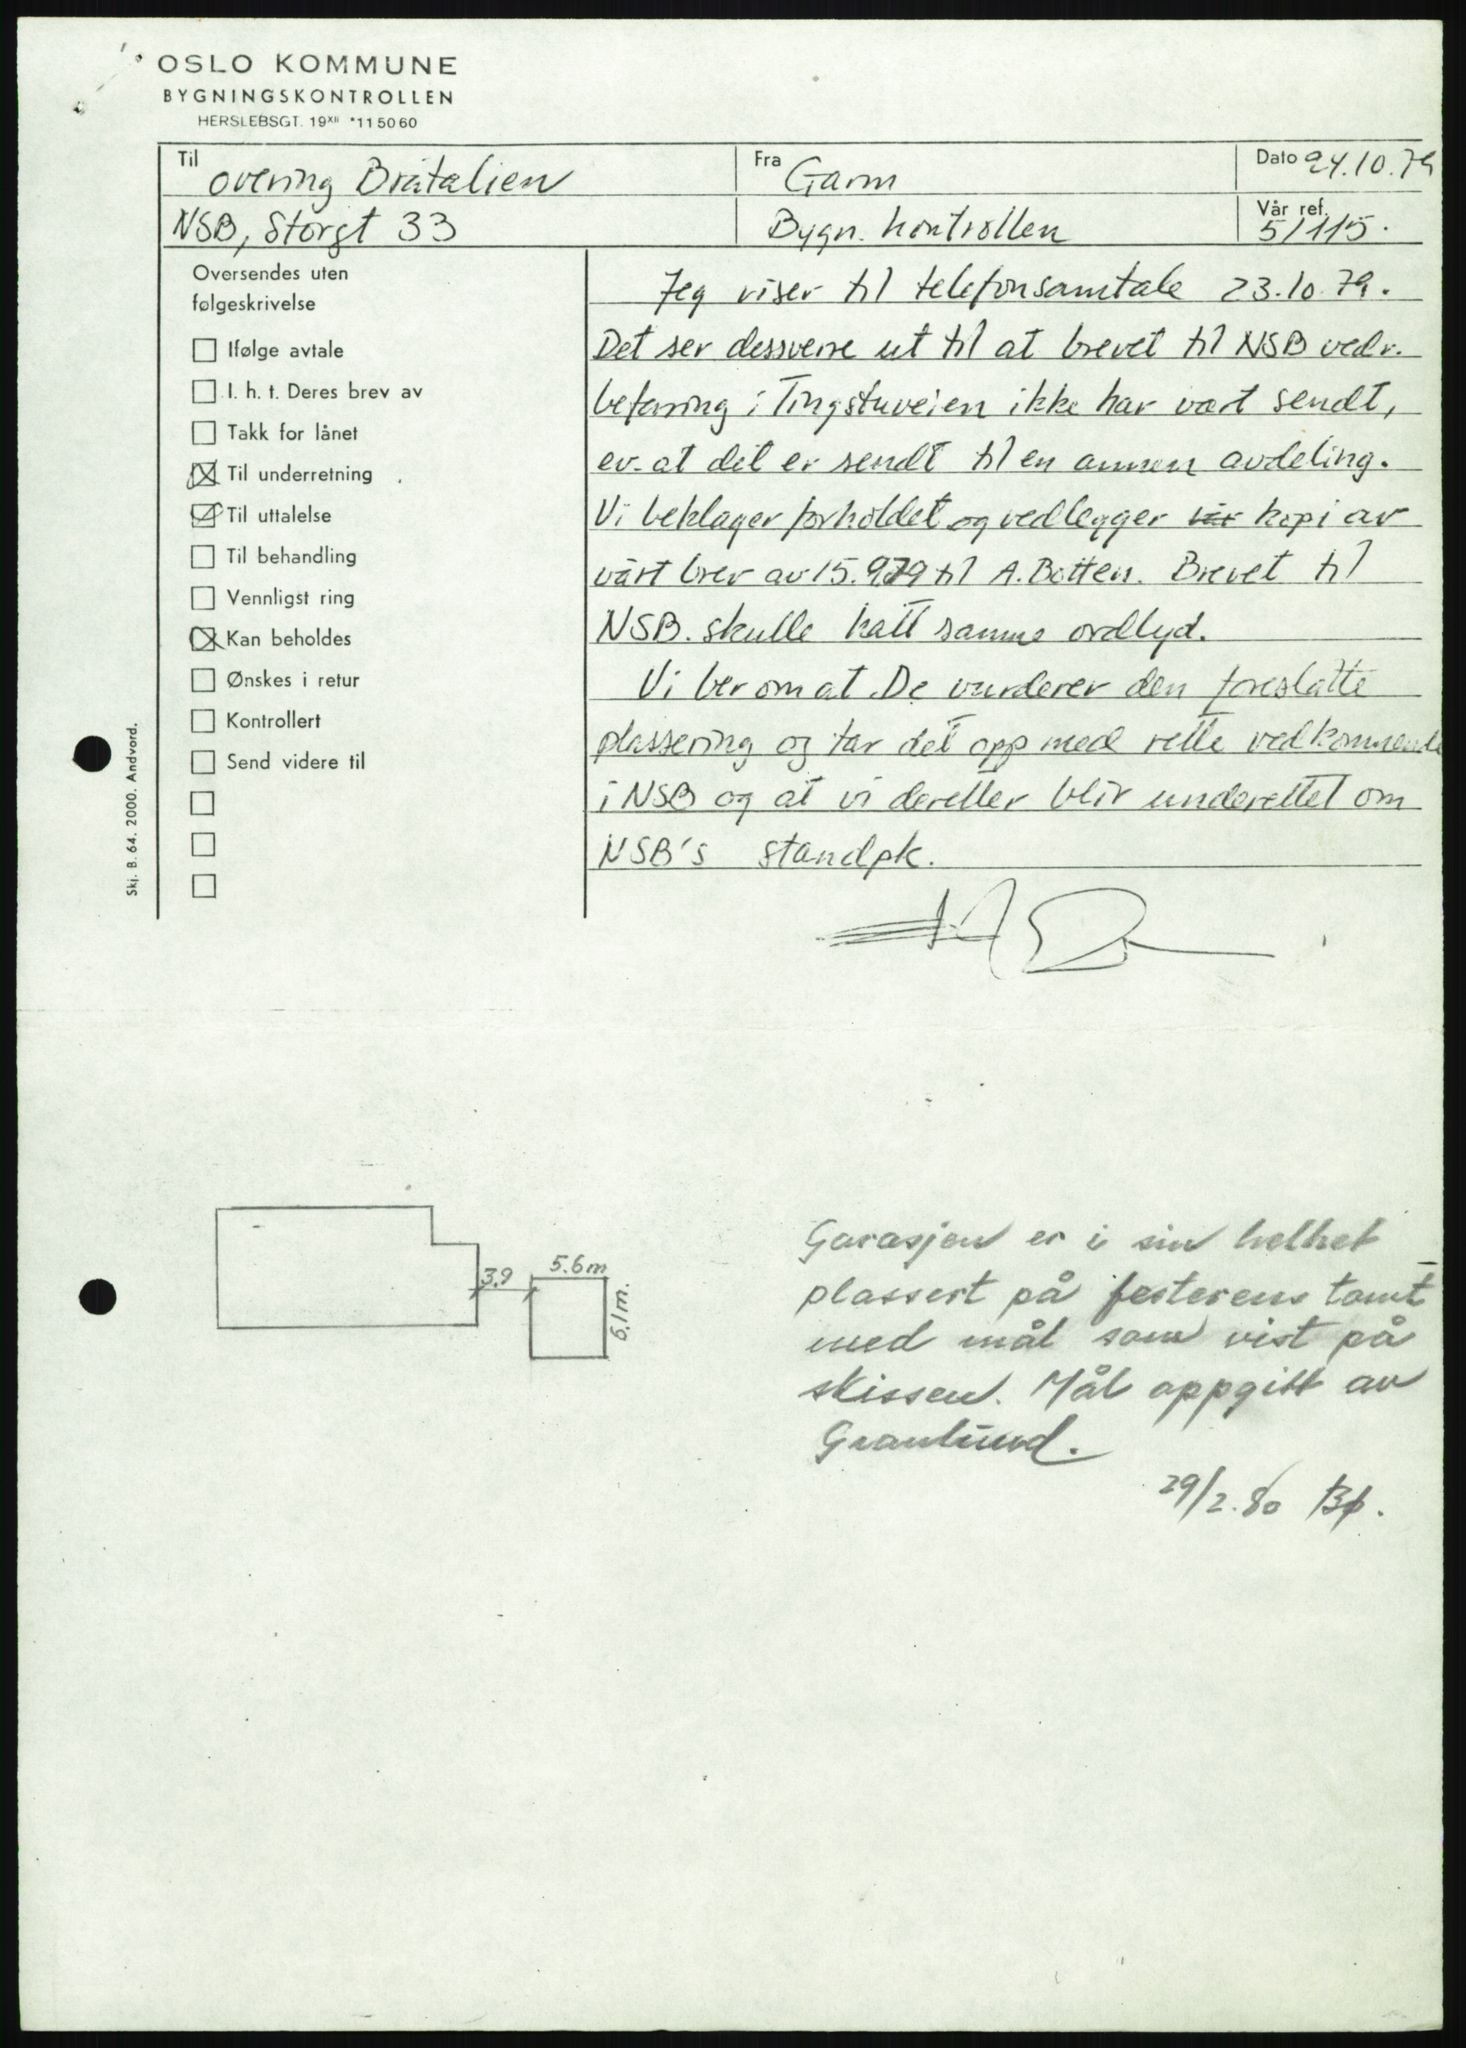 OSLO KOMMUNE
BYGNINGSKONTROLLEN
HERSLEBSGT. 19XII *11 50 60
Til overing Bråtalien
Fra Garm
Dato 24.10.79
NSB, Storgt 33
Bygn. kontrollen
Vår ref. 51115.
Oversendes uten
følgeskrivelse
Ifølge avtale
I. h. t. Deres brev av
Takk for lånet
Til underretning
Til uttalelse
Til behandling
Vennligst ring
Kan beholdes
Ønskes i retur
Kontrollert
Send videre til
Skj. B. 64. 2000. Andvord.
Jeg viser til telefonsamtale 23.10.79.
Det ser dessverre ut til at brevet til NSB vedr.
befaring i Tingstuveien ikke har vært sendt,
ev. at det er sendt til en annen avdeling.
Vi beklager forholdet og vedlegger kopi av
vårt brev av 15.9.79 til A. Botten. Brevet til
NSB. skulle hatt samme ordlyd.
Vi ber om at De vurderer den foreslåtte
plassering og tar det opp med rette vedkommende
i NSB og at vi deretter blir underettet om
NSB's standpk.
3,9
5.6m
6,1m.
Garasjen er i sin helhet
plassert på festerens tomt
med mål som vist på
skissen. Mål oppgitt av
Granlund.
29/2.80 Bp.